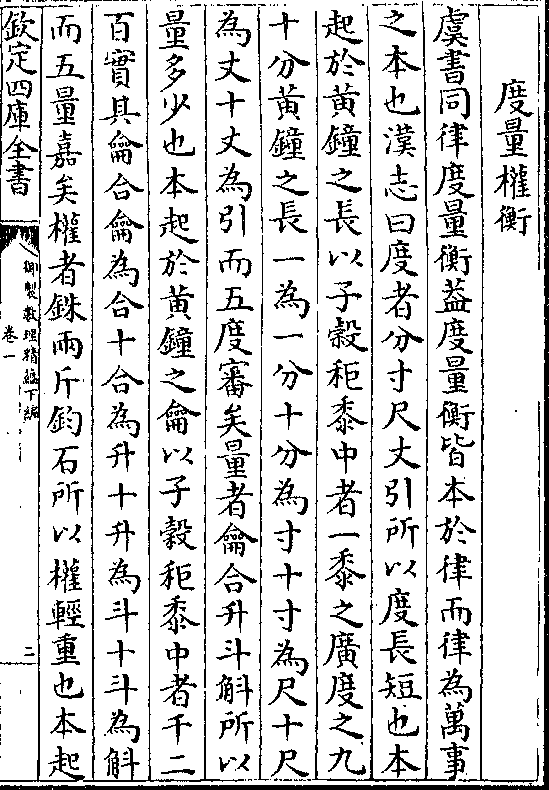 度量權衡
虞書同律度量衡葢度量衡皆本於律而律為萬事
之本也漢志曰度者分寸尺丈引所以度長短也本
起於黃鐘之長以子穀秬黍中者一黍之廣度之九
十分黃鐘之長一為一分十分為寸十寸為尺十尺
為丈十丈為引而五度審矣量者龠合升斗斛所以
量多少也本起於黃鐘之龠以子穀秬黍中者千二
百實其龠合龠為合十合為升十升為斗十斗為斛
而五量嘉矣權者銖兩斤鈞石所以權輕重也本起
欽定四庫全書
御製數理精蘊下編
卷一
二